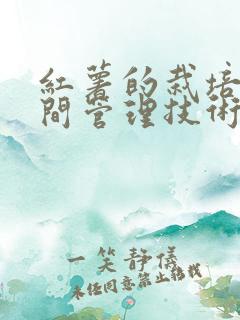 紅薯的栽培
間管理技術
一笑靜儀
未经同意禁止转载